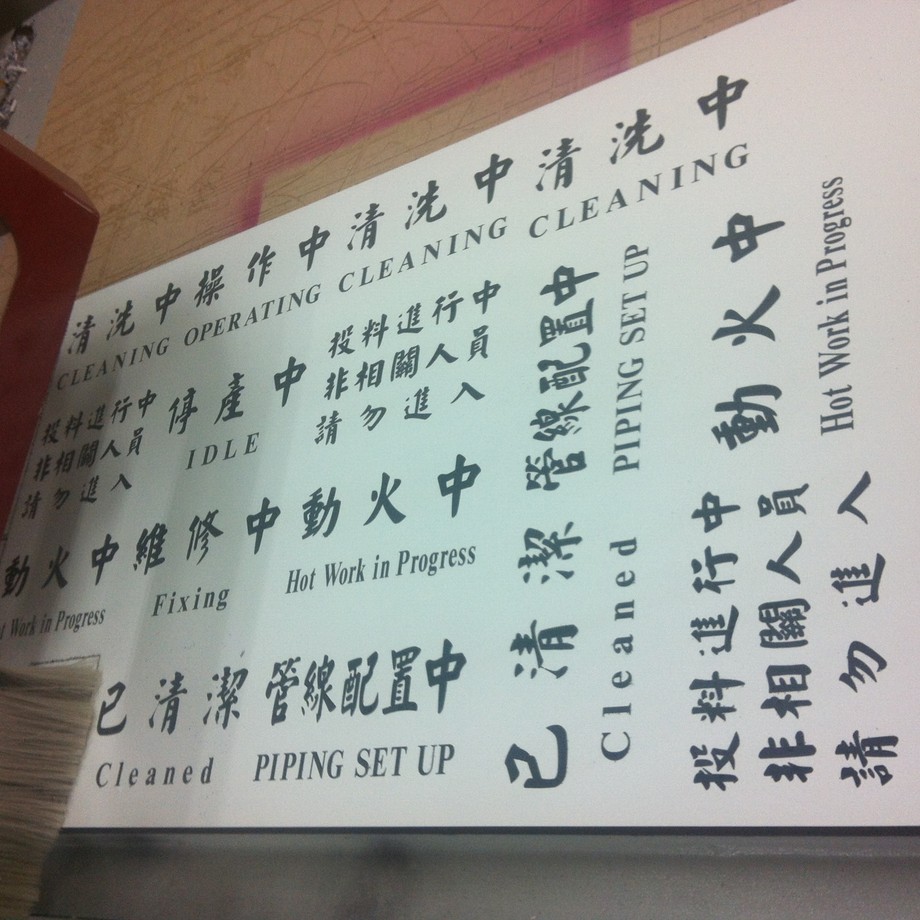 清洗中操作中清洗中清洗中
CLEANING OPERATING CLEANING CLEANING
投料進行中
非相關人員
請勿進入
停產中
IDLE
投料進行中
非相關人員
請勿進入
動火中維修中動火中
Work in Progress Fixing Hot Work in Progress
已清潔 管線配置中
Cleaned PIPING SET UP
管線配置中
PIPING SET UP
已清潔
Cleaned
動火中
Hot Work in Progress
投料進行中
非相關人員
請勿進入